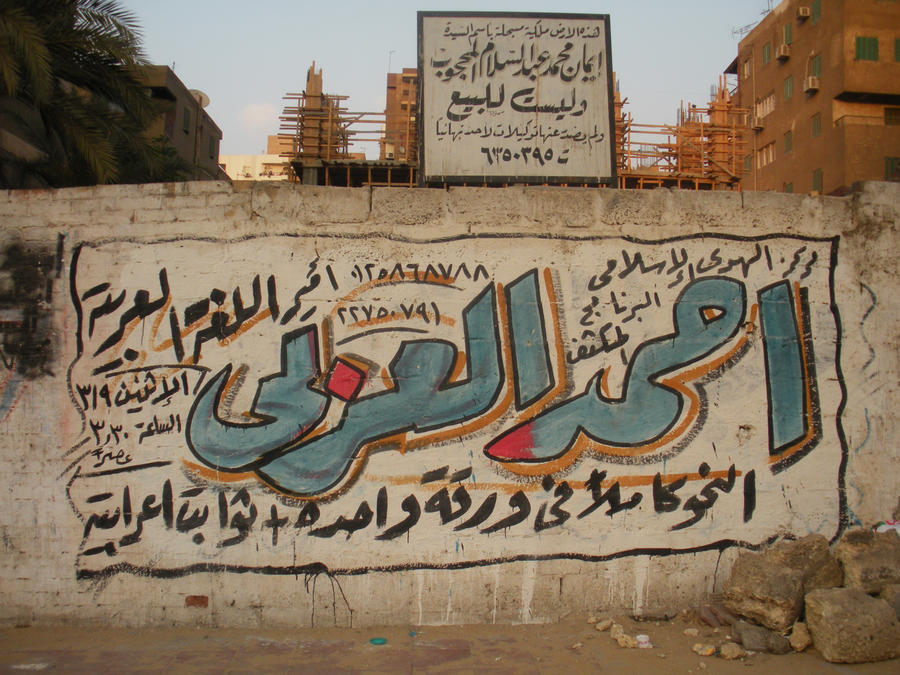 هذه الارض ملكية مسجلة باسم السيدة
إيمان محمد عبد السلام المحجوب
وليست للبيع
ولم يصدر عنها توكيلات لاحد نهائيا
ت ٦٣٥٠٣٩٥
مركز الهدى الإسلامى
البرنامج
المكثف
احمد العزبى
٠١٢٥٨٦٨٧٨٨
٢٢٧٥٠٧٩١
اللغة العربية
الاثنين ٣١٩
الساعة ٣٫٣٠
عصراً
النحو كاملاً فى ورقة واحده + ثوابت اعرابية